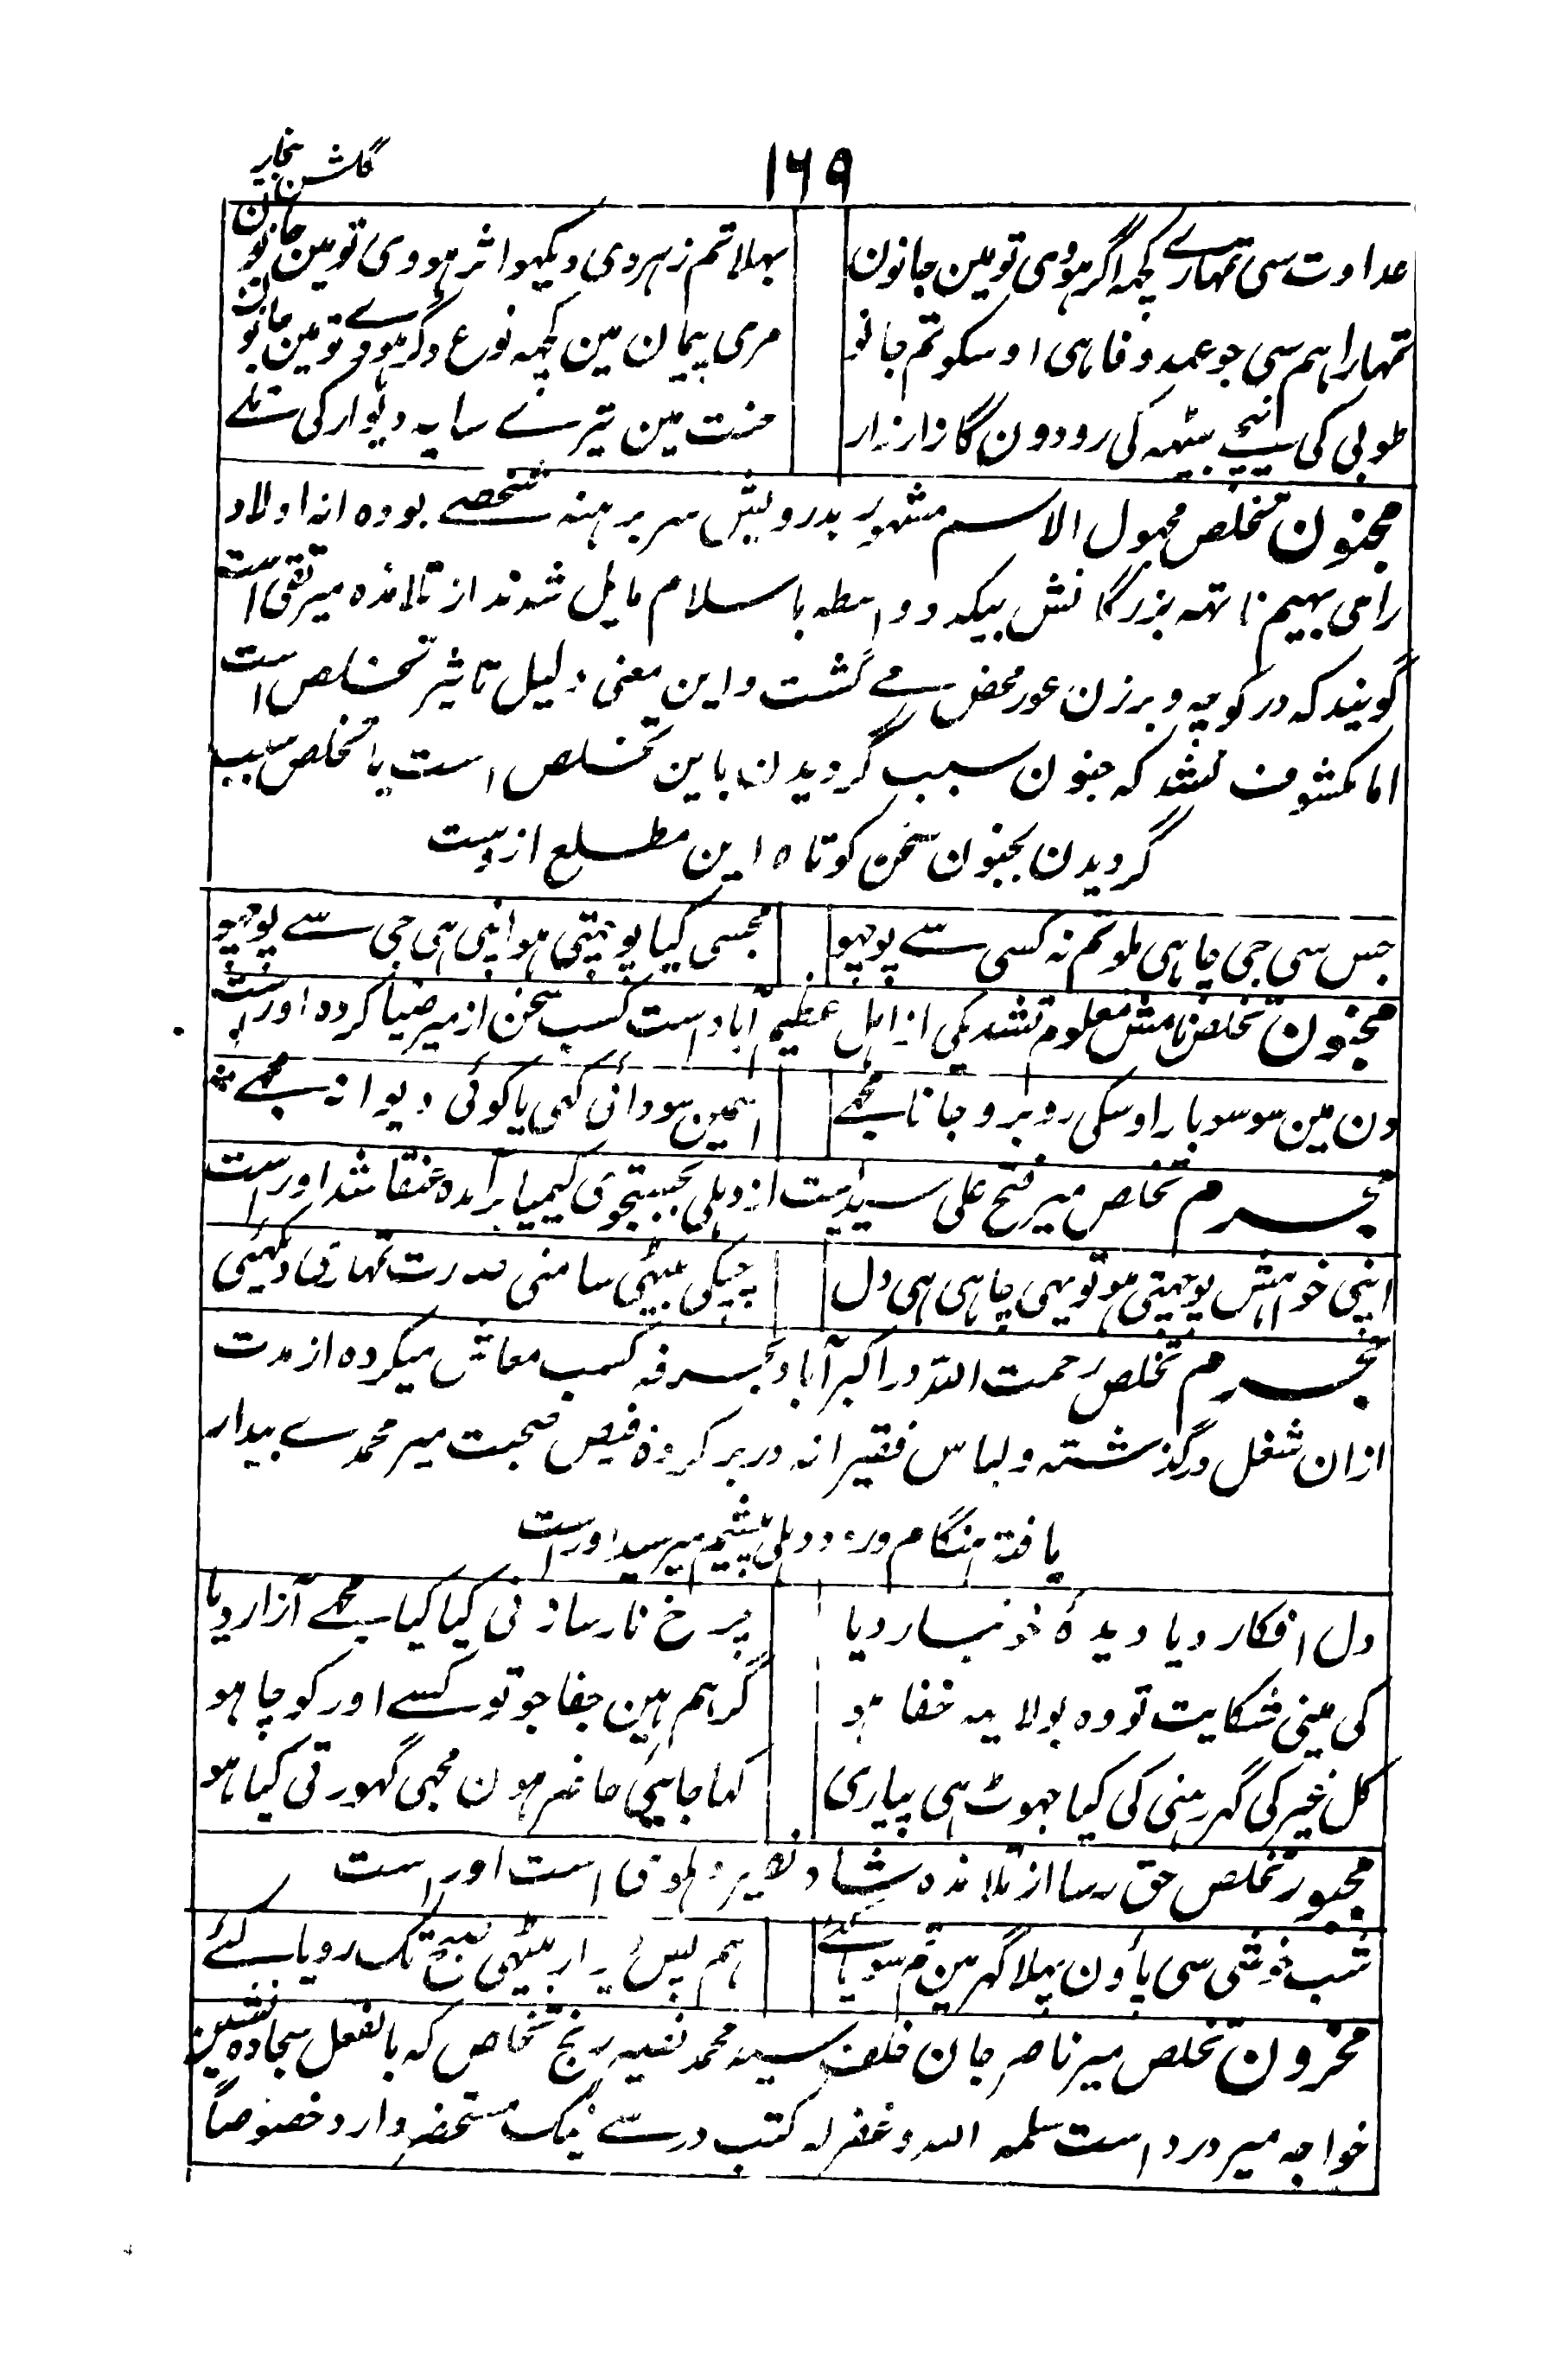 گلشن بیخار
۱۶۹
عداوت سی تمہارے کچہہ اگر ہووی تو مین جانون
بہلا تم زہر دی دیکہو اثر ہووی تو مین جانون
تمہارا ہم سی جو عہد وفا ہی اوسکو تم جانو
مری پیمان مین کچہہ نوع دگر ہووے تو مین جانون
طوبی کی نیچے بیٹہہ کی رودون گا زار زار
جنت مین تیرے سایہ دیوار کی تلے
مجنون تخلص مجہول الاسم مشہور بدرویش سر برہنہ شخصے بودہ از اولاد
رامی بہیم ناتہہ بزرگانش بیکدو واسطہ باسلام مایل شدند از تلامذہ میر تقی است
گویند کہ در کوچہ و برزن عور محض مے گشت و این معنی دلیل تاثیر تخلص است
اما مکشوف نشد کہ جنون سبب گردیدن باین تخلص است یا تخلص سبب
گردیدن بجنون سخن کوتاہ این مطلع ازوست
جس سی جی چاہی ملو تم نہ کسی سے پوچہو
مجسی کیا پوچہتی ہو اپنی ہی جی سے پوچہو
مجنون تخلص نامش معلوم نشد یکی از اہل عظیم آباد است کسب سخن از میر ضیا کردہ اوراست
دن مین سو سو بار اوسکی روبرو جانا مجہے
اسمین سودائی کہی یا کوئی دیوانہ مجہے
مجرم تخلص میر فتح علی سیدیست از دہلی بجستجوی کیمیا برآمدہ عنقا شد اوراست
اپنی خواہش پوچہتی ہو تو یہی چاہی ہی دل
چپکی بیٹہی سامنی صورت تمہاری دیکہئی
مجرم تخلص رحمت اللہ در اکبرآباد بحرفہ کسب معاش میکردہ از مدت
ازان شغل درگذشتہ و لباس فقیرانہ دربر کردہ فیض صحبت میر محمدے بیدار
یافتہ ہنگام ورود دہلی پیشم میرسید اوراست
دل افکار دیا دیدۂ خونبار دیا
چرخ ناساز نی کیا کیا مجہے آزار دیا
کی مینی شکایت تو وہ بولا یہ خفا ہو
گر ہم ہین جفا جو تو کسے اور کو چاہو
کل غیر کی گہر مینی کی کیا جہوٹ ہی پیاری
کہا جائیی حاضر ہون مجہی گہورتی کیا ہو
مجبور تخلص حق رسا از تلامذہ شاہ نصیر دہلوی است اوراست
شب خوشی سی پاؤن پہلا گہر مین تم سویا کئے
ہم پس دیوار بیٹہی صبح تک رویا کئے
محزون تخلص میر ناصر جان خلف سید محمد نصیر رنج تخلص کہ بالفعل سجادہ نشین
خواجہ میر درد است سلمہ اللہ و غفر لہ کتب درسے نیک مستحضر دارد خصوصاً